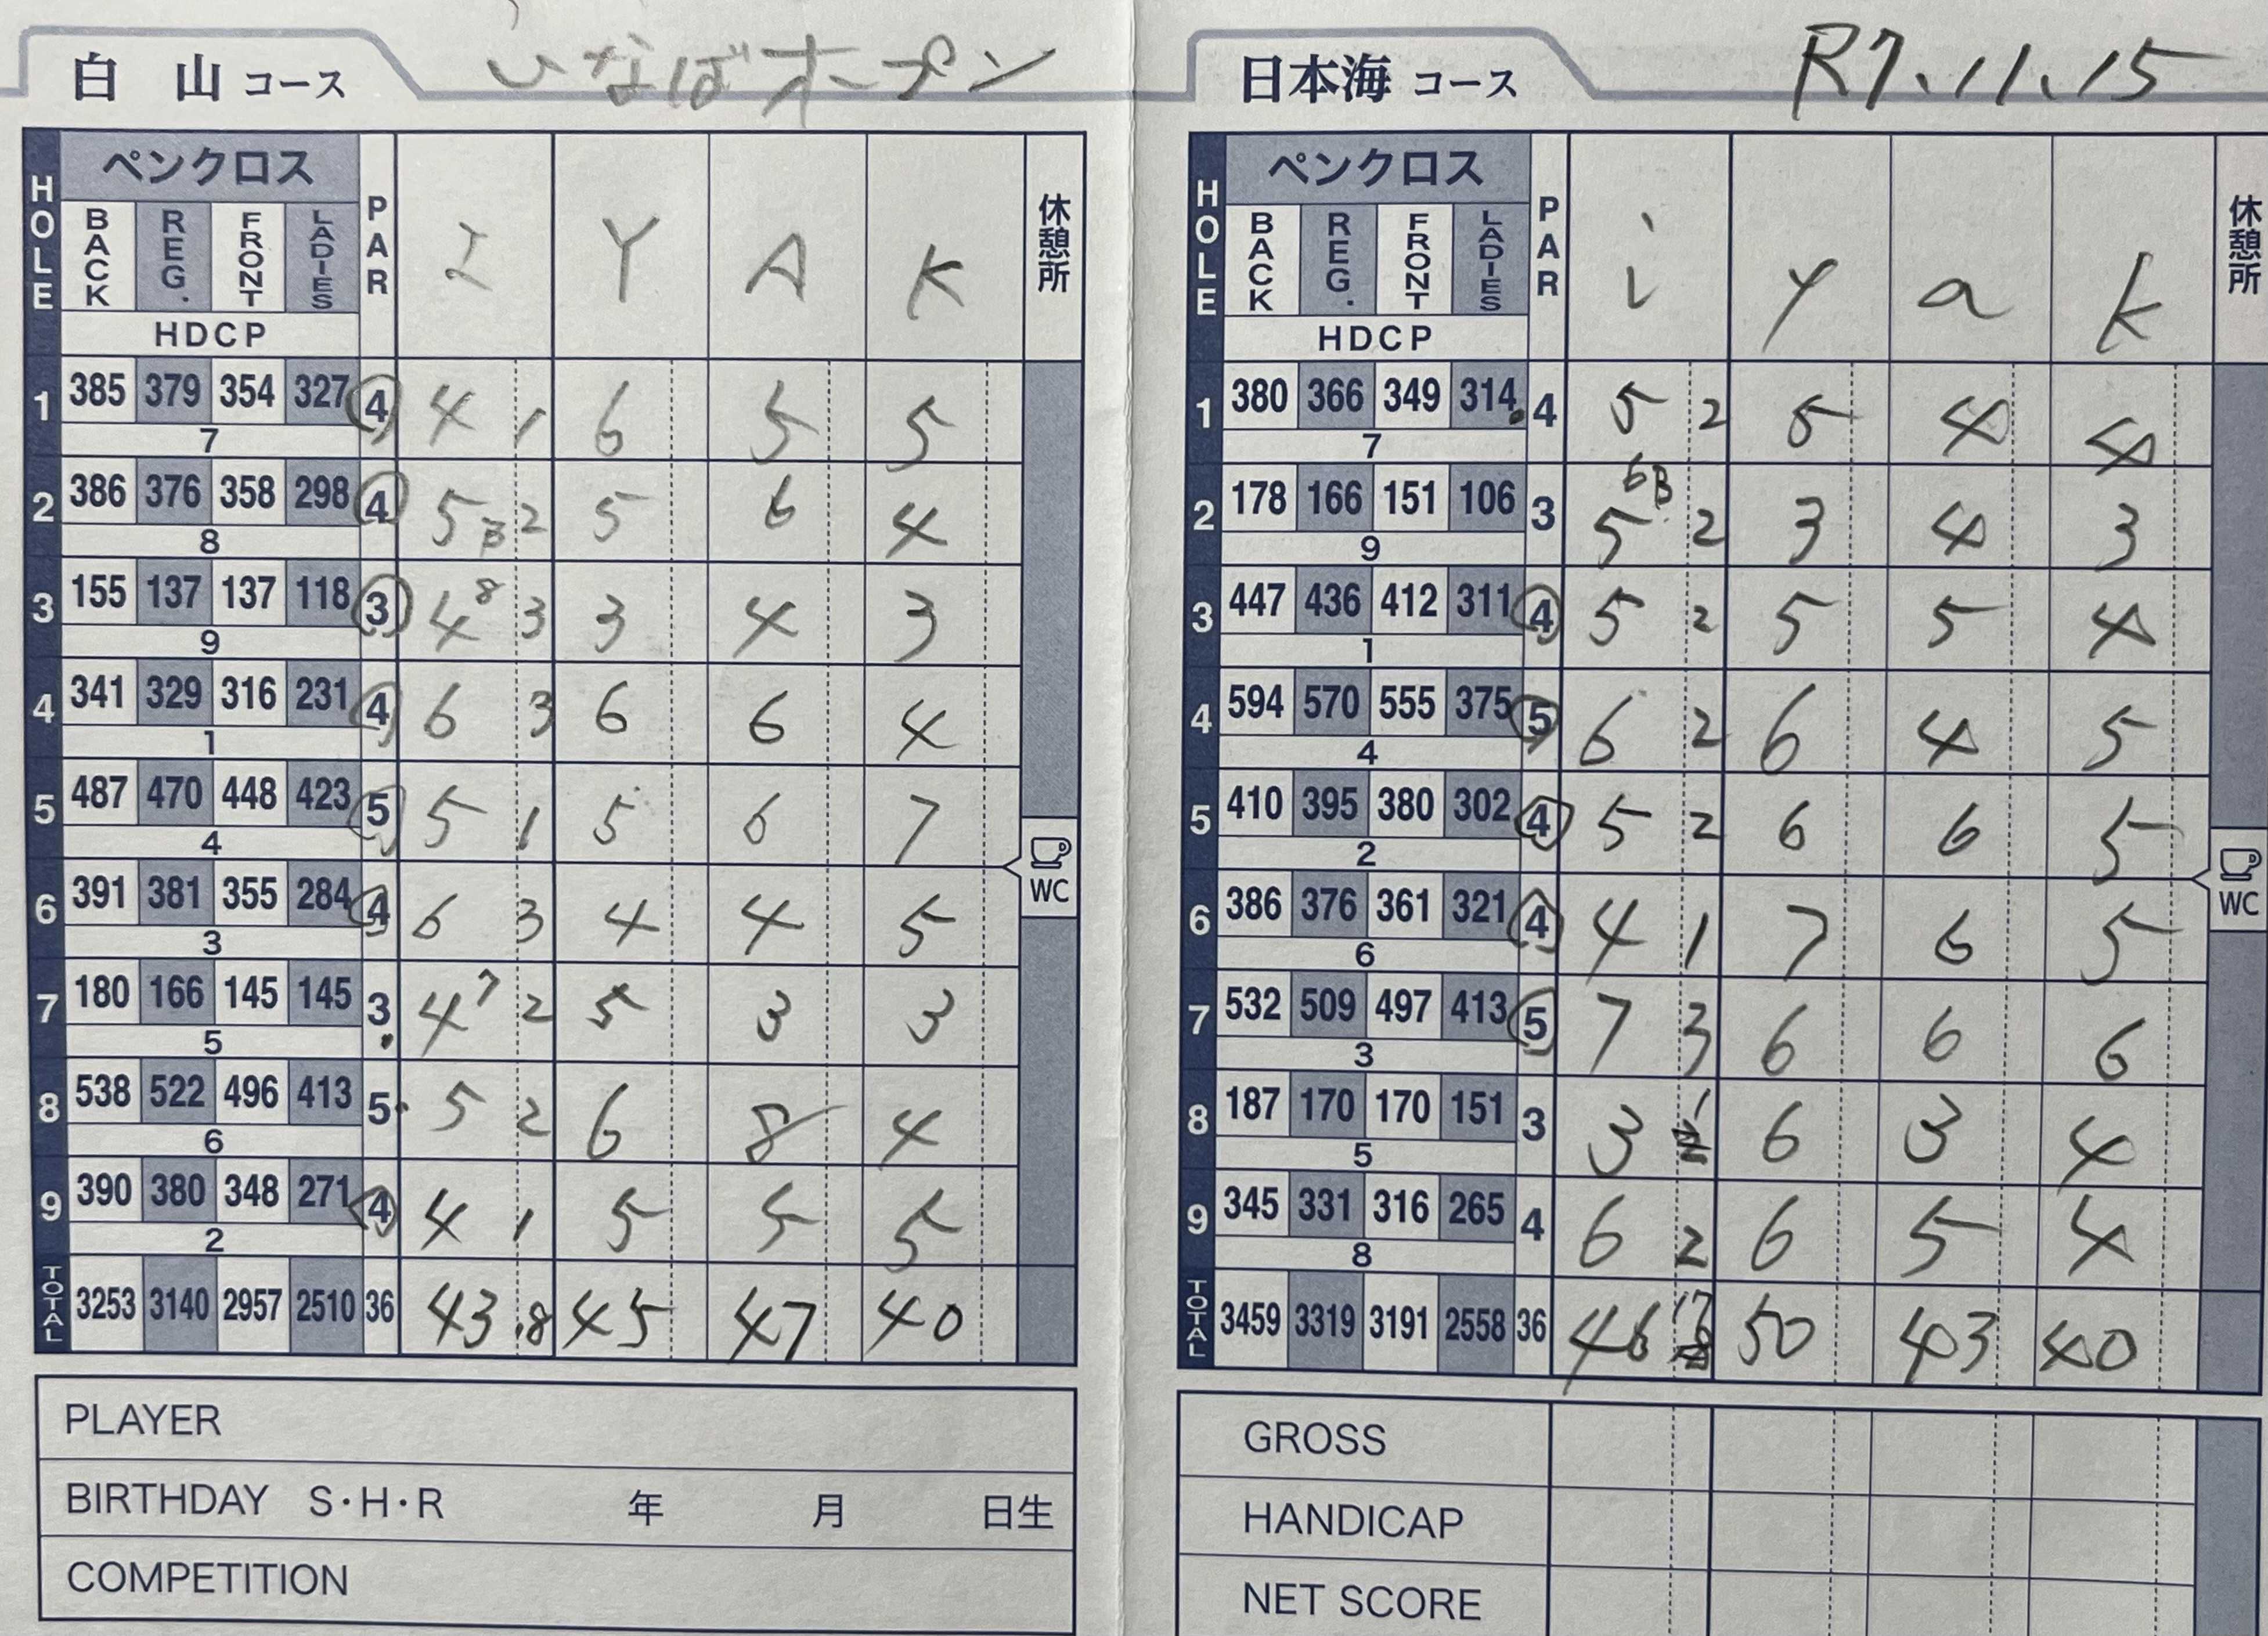 白 山 コース いなばオープン
HOLE ペンクロス PAR I Y A K 休憩所
BACK REG. FRONT LADIES
HDCP
1 385 379 354 327 4 4 1 6 5 5
7
2 386 376 358 298 4 5 B 2 5 6 4
8
3 155 137 137 118 3 4 8 3 3 4 3
9
4 341 329 316 231 4 6 3 6 6 4
1
5 487 470 448 423 5 5 1 5 6 7
4
WC
6 391 381 355 284 4 6 3 4 4 5
3
7 180 166 145 145 3 4 7 2 5 3 3
5
8 538 522 496 413 5 5 2 6 8 4
6
9 390 380 348 271 4 4 1 5 5 5
2
TOTAL 3253 3140 2957 2510 36 43 18 45 47 40
PLAYER
BIRTHDAY S・H・R 年 月 日生
COMPETITION
日本海 コース R7.11.15
HOLE ペンクロス PAR i y a k 休憩所
BACK REG. FRONT LADIES
HDCP
1 380 366 349 314 4 5 2 5 4 4
7
2 178 166 151 106 3 6B 5 2 3 4 3
9
3 447 436 412 311 4 5 2 5 5 4
1
4 594 570 555 375 5 6 2 6 4 5
4
5 410 395 380 302 4 5 2 6 6 5
2
WC
6 386 376 361 321 4 4 1 7 6 5
6
7 532 509 497 413 5 7 3 6 6 6
3
8 187 170 170 151 3 3 1 6 3 4
5
9 345 331 316 265 4 6 2 6 5 4
8
TOTAL 3459 3319 3191 2558 36 46 17 50 43 40
GROSS
HANDICAP
NET SCORE